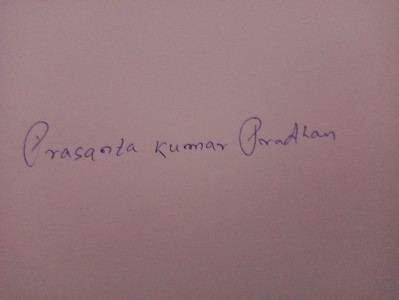 Prasanta Kumar Pradhan